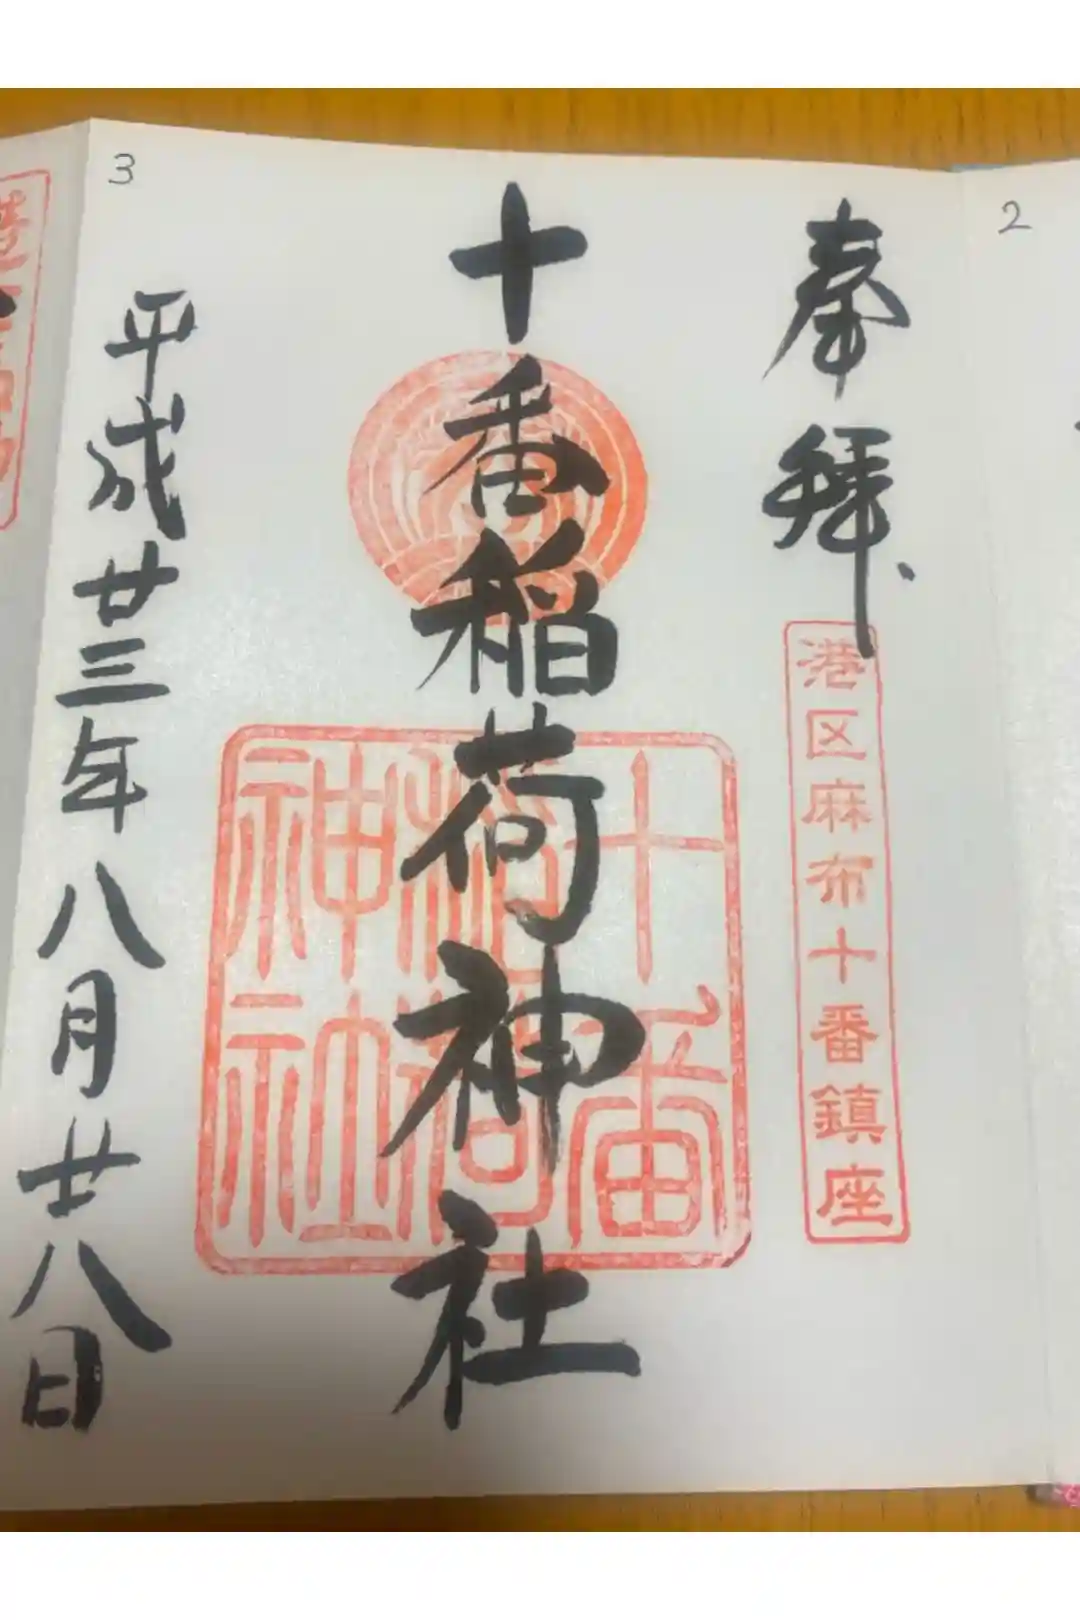 2
奉拝
港区麻布十番鎮座
十番稲荷神社
十番
稲荷
神社
3
平成廿三年八月廿八日